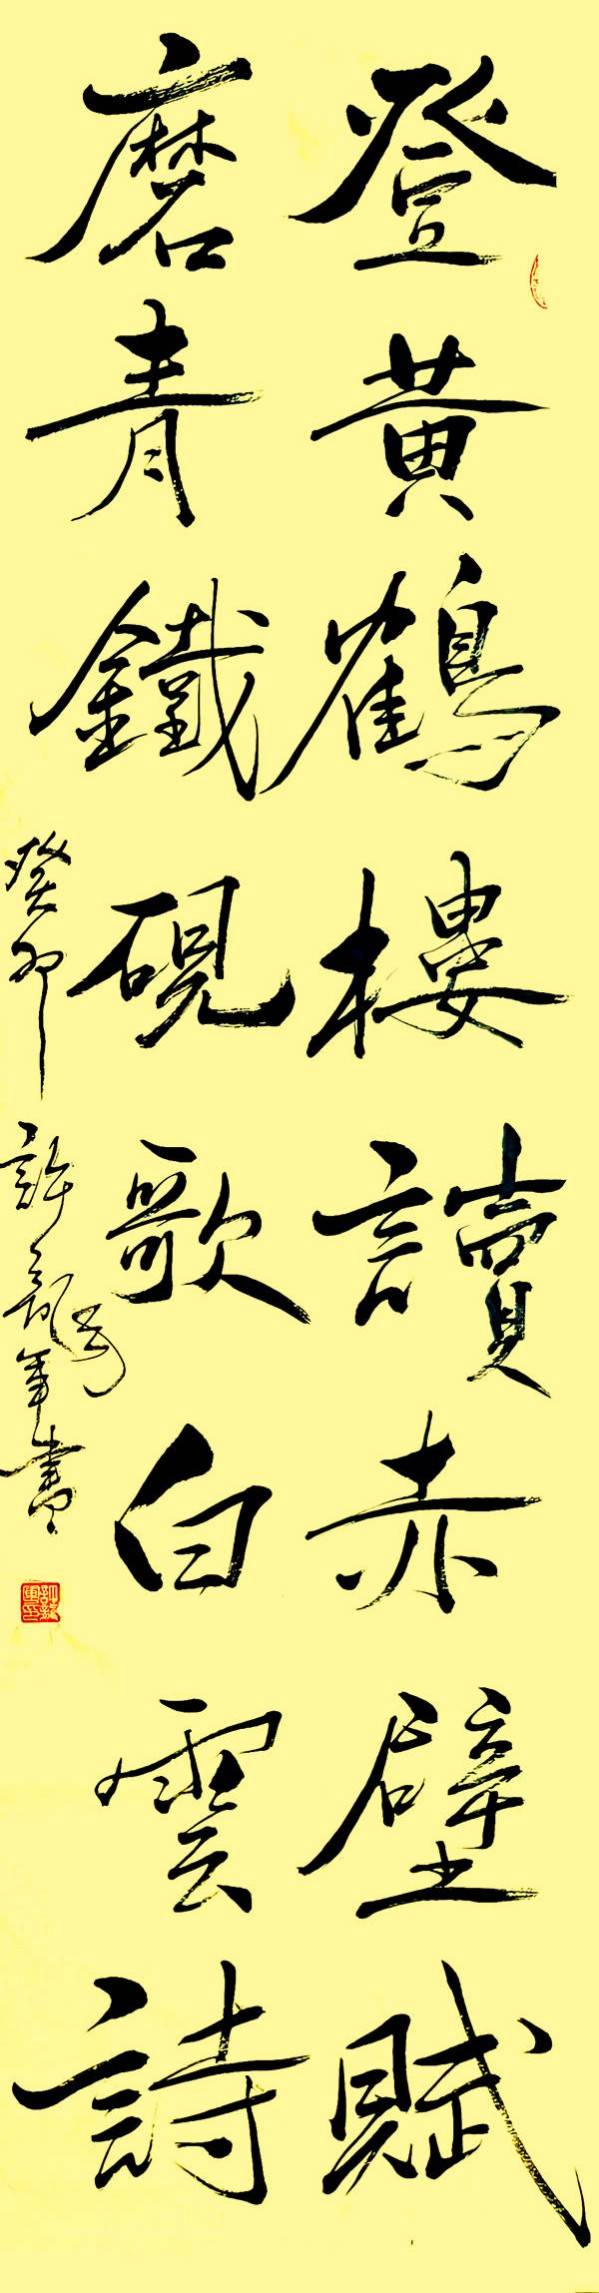 登黃鶴樓讀赤壁賦
磨青鐵硯歌白雲詩
癸卯許龍年書